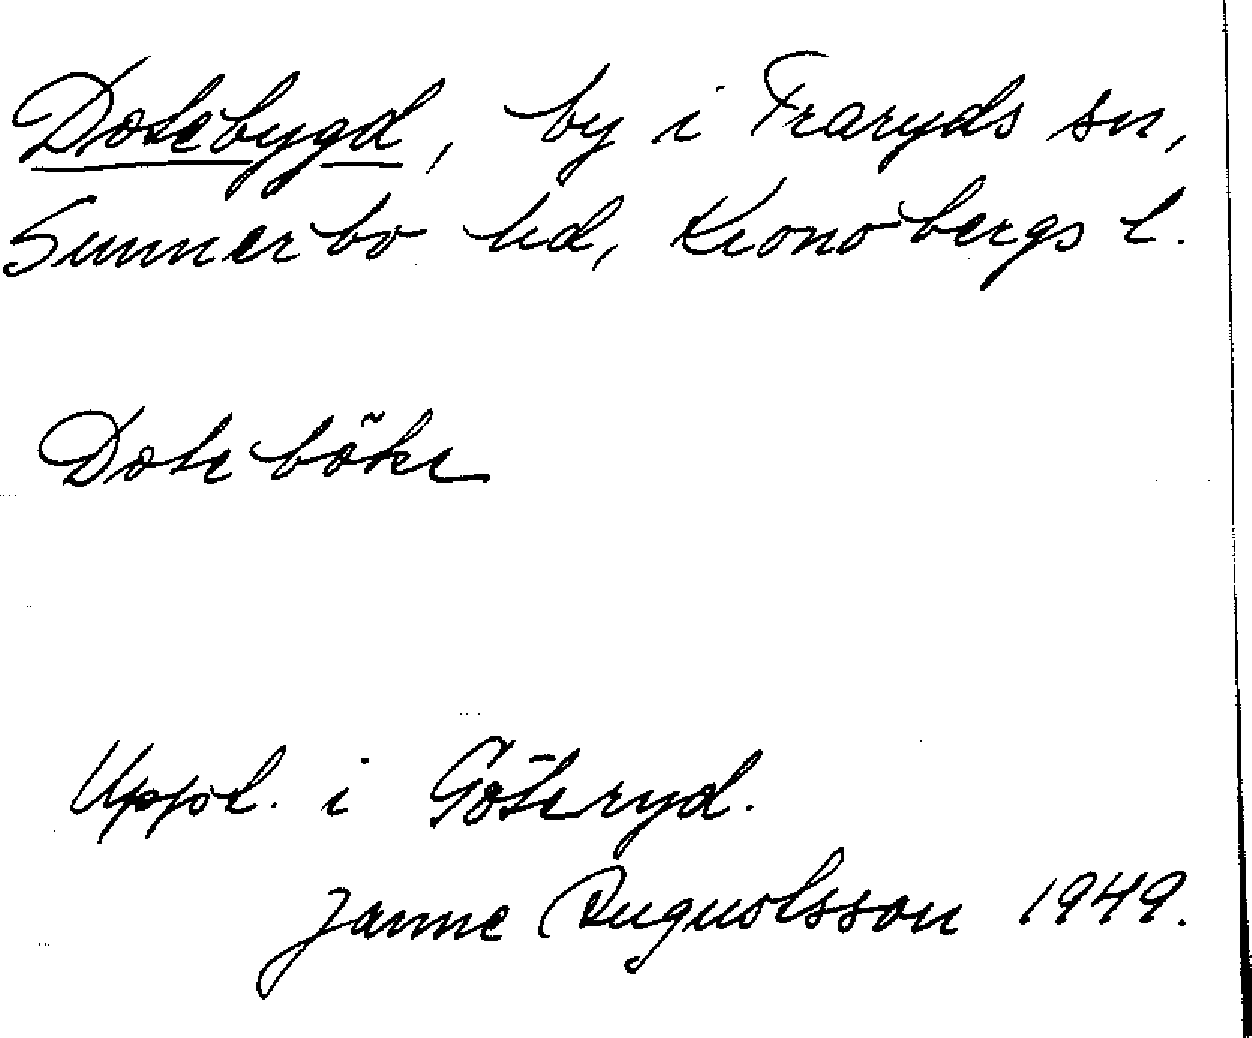 Dotebygd, by i Traryds sn,
Sunnerbo hd, Kronobergs l.
Doteböke
Uppt. i Göteryd.
Janne Augustsson 1949.